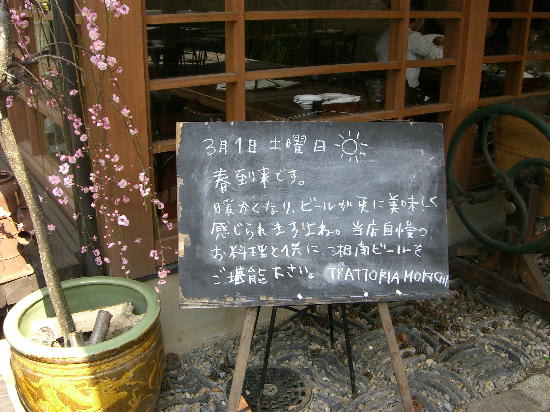 3月1日 土曜日
春到来です。
暖かくなり、ビールが更に美味しく
感じられますよね。当店自慢の
お料理と供に、湘南ビールを
ご堪能下さい。 TRATTORIA